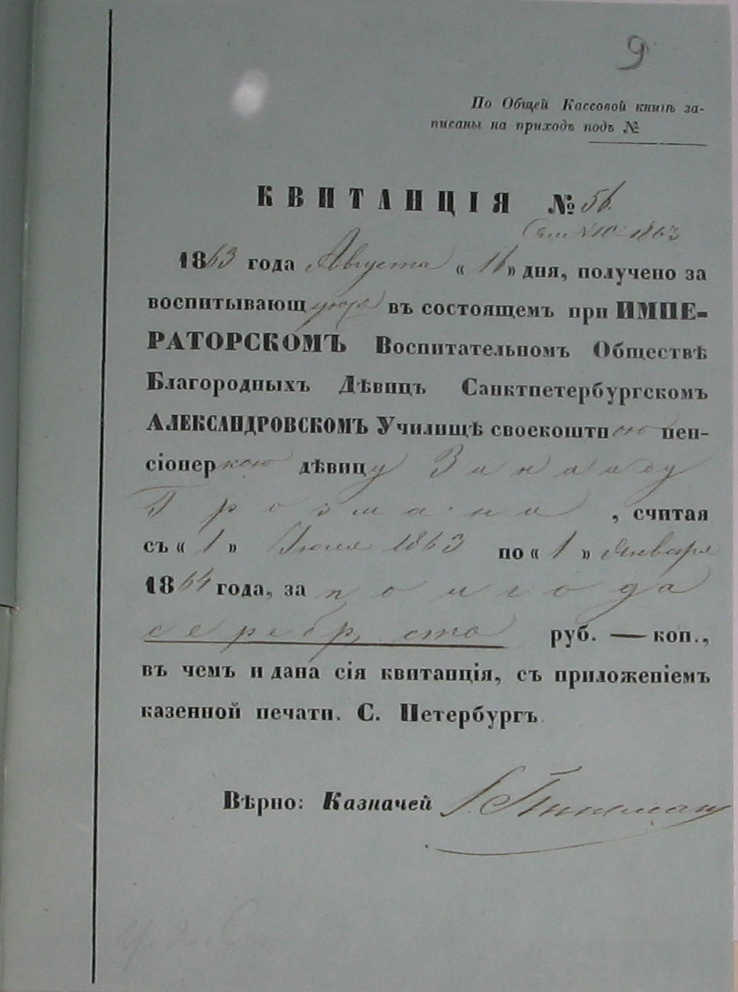 9
По Общей Кассовой книгѣ за-
писаны на приходъ подъ №
КВИТАНЦІЯ № 56.
1863
1863 года Августа « 16 » дня, получено за
воспитывающуюся въ состоящемъ при ИМПЕ-
РАТОРСКОМЪ Воспитательномъ Обществѣ
Благородныхъ Дѣвицъ Санктпетербургскомъ
АЛЕКСАНДРОВСКОМЪ Училищѣ своекоштною пен-
сіонеркою дѣвицу Зинаиду
, считая
съ « 1 » Іюля 1863 по « 1 » Января
1864 года, за полгода
серебр. сто руб. — коп.,
въ чемъ и дана сія квитанція, съ приложеніемъ
казенной печати. С. Петербургъ.
Вѣрно: Казначей